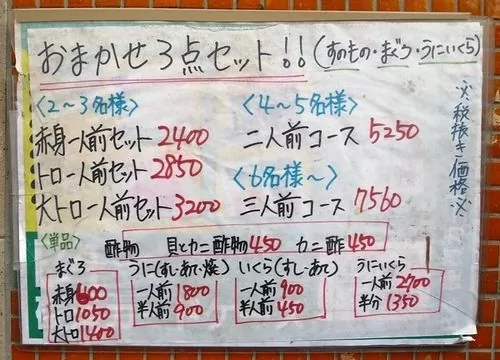 おまかせ3点セット!! (すのもの・まぐろ・うにいくら)
※税抜き価格※
〈2〜3名様〉
赤身一人前セット 2400
トロ一人前セット 2850
大トロ一人前セット 3200
〈4〜5名様〉
二人前コース 5250
〈6名様〜〉
三人前コース 7560
〈単品〉
酢物 貝とカニ酢物 450 カニ酢 450
まぐろ
赤身 600
トロ 1050
大トロ 1400
うに(すし・あて・焼)
一人前 1800
半人前 900
いくら(すし・あて)
一人前 900
半人前 450
うにいくら
一人前 2700
半分 1350